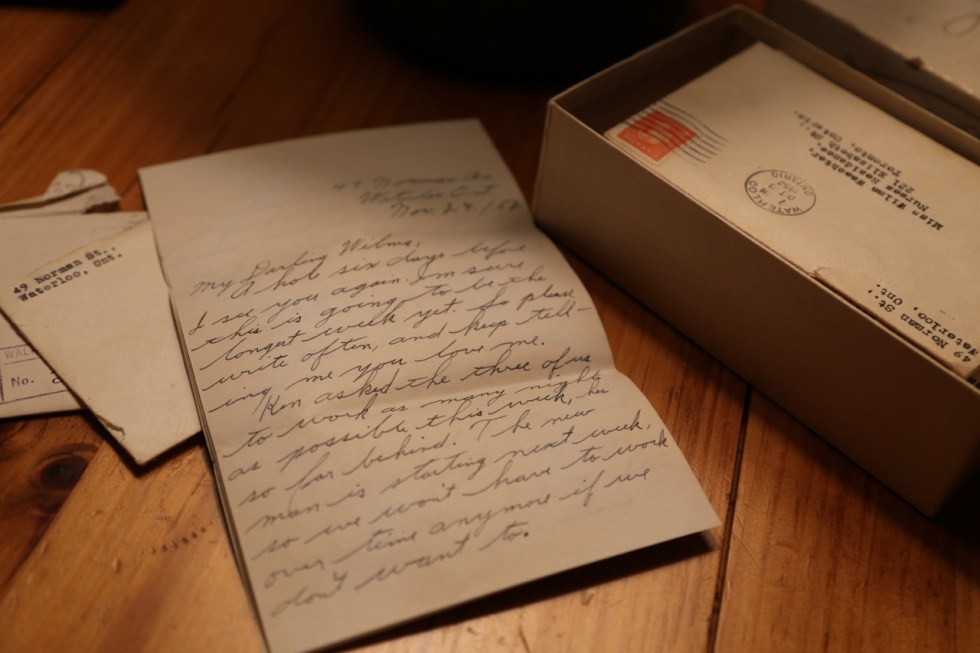 49 Norman St.
Waterloo Ont
Nov 29/52
My Darling Wilma,
A hole six days before
I see you again. I'm sure
this is going to be the
longest week yet. So please
write often, and keep tell-
ing me you love me.
Ken asked the three of us
to work as many nights
as possible this week, he's
so far behind. The new
man is starting next week,
so we won't have to work
over time anymore if we
don't want to.
49 Norman St.,
Waterloo, Ont.
No.
WATERLOO
ONTARIO
Miss Wilma
Nurses Residence,
221 Elizabeth St.,
Toronto, Ontario.
49 Norman St.,
Waterloo, Ont.